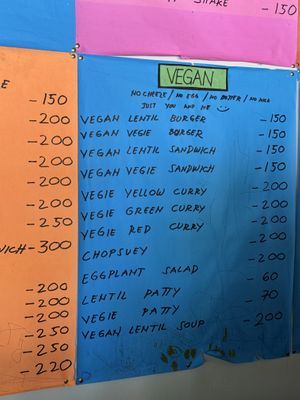 SHAKE -150
VEGAN
NO CHEEZE / NO EGG / NO BUTTER / NO MILK
JUST YOU AND ME
VEGAN LENTIL BURGER -150
VEGAN VEGIE BURGER -150
VEGAN LENTIL SANDWICH -150
VEGAN VEGIE SANDWICH -150
VEGIE YELLOW CURRY -200
VEGIE GREEN CURRY -200
VEGIE RED CURRY -200
CHOPSUEY -200
EGGPLANT SALAD -60
LENTIL PATTY -70
VEGIE PATTY
VEGAN LENTIL SOUP -200
-150
-200
-200
-200
-200
-200
-250
-300
-200
-200
-200
-250
-250
-220